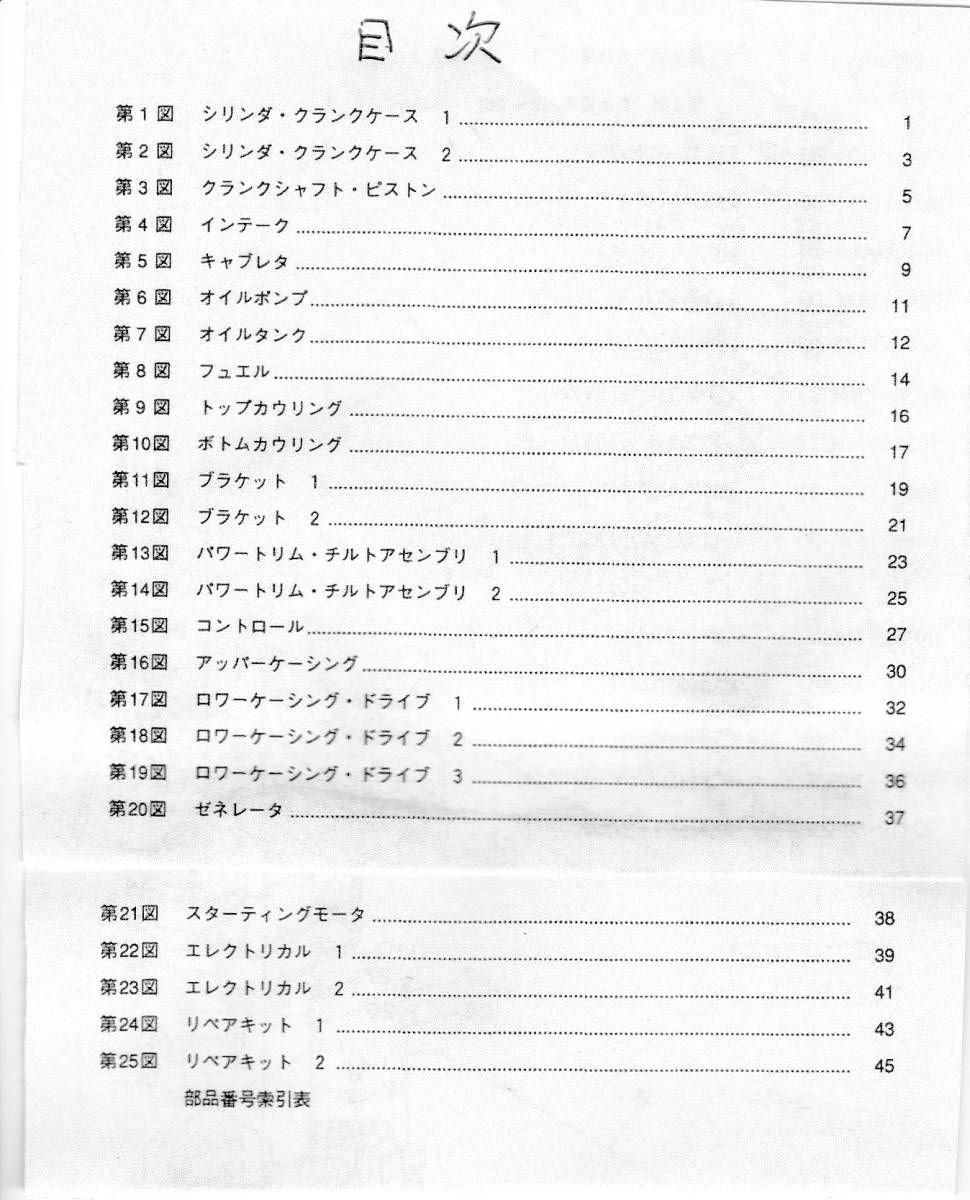 目次
第1図 シリンダ・クランクケース 1 1
第2図 シリンダ・クランクケース 2 3
第3図 クランクシャフト・ピストン 5
第4図 インテーク 7
第5図 キャブレタ 9
第6図 オイルポンプ 11
第7図 オイルタンク 12
第8図 フュエル 14
第9図 トップカウリング 16
第10図 ボトムカウリング 17
第11図 ブラケット 1 19
第12図 ブラケット 2 21
第13図 パワートリム・チルトアセンブリ 1 23
第14図 パワートリム・チルトアセンブリ 2 25
第15図 コントロール 27
第16図 アッパーケーシング 30
第17図 ロワーケーシング・ドライブ 1 32
第18図 ロワーケーシング・ドライブ 2 34
第19図 ロワーケーシング・ドライブ 3 36
第20図 ゼネレータ 37
第21図 スターティングモータ 38
第22図 エレクトリカル 1 39
第23図 エレクトリカル 2 41
第24図 リペアキット 1 43
第25図 リペアキット 2 45
部品番号索引表